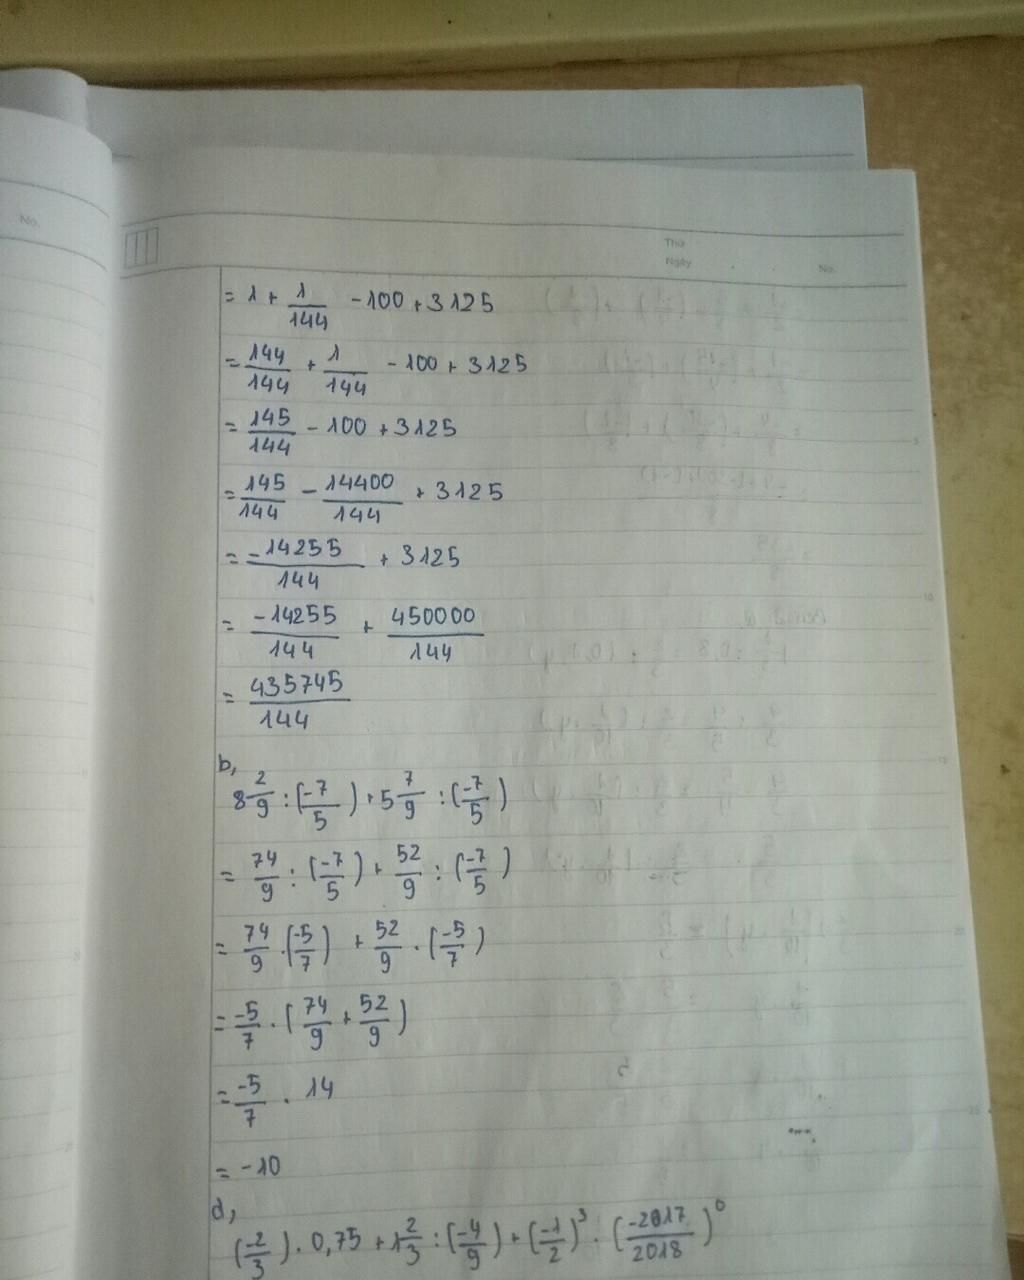 No.
Thứ
Ngày No.
= 1 + 1/144 - 100 + 3125
= 144/144 + 1/144 - 100 + 3125
= 145/144 - 100 + 3125
= 145/144 - 14400/144 + 3125
= -14255/144 + 3125
= -14255/144 + 450000/144
= 435745/144
b,
8 2/9 : (-7/5) + 5 7/9 : (-7/5)
= 74/9 : (-7/5) + 52/9 : (-7/5)
= 74/9 . (-5/7) + 52/9 . (-5/7)
= -5/7 . (74/9 + 52/9)
= -5/7 . 14
= -10
d,
(-2/3) . 0,75 + 1 2/3 : (-4/9) + (-1/2)³ . (-2017/2018)⁰